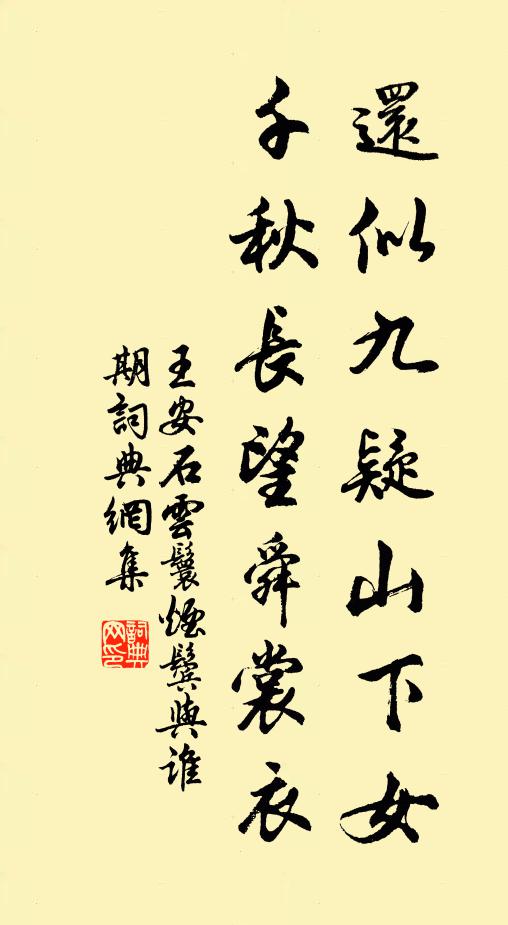 還似九疑山下女
千秋長望舜裳衣
王安石雲鬟煙鬢與誰
期詞典網集
詞典
网印